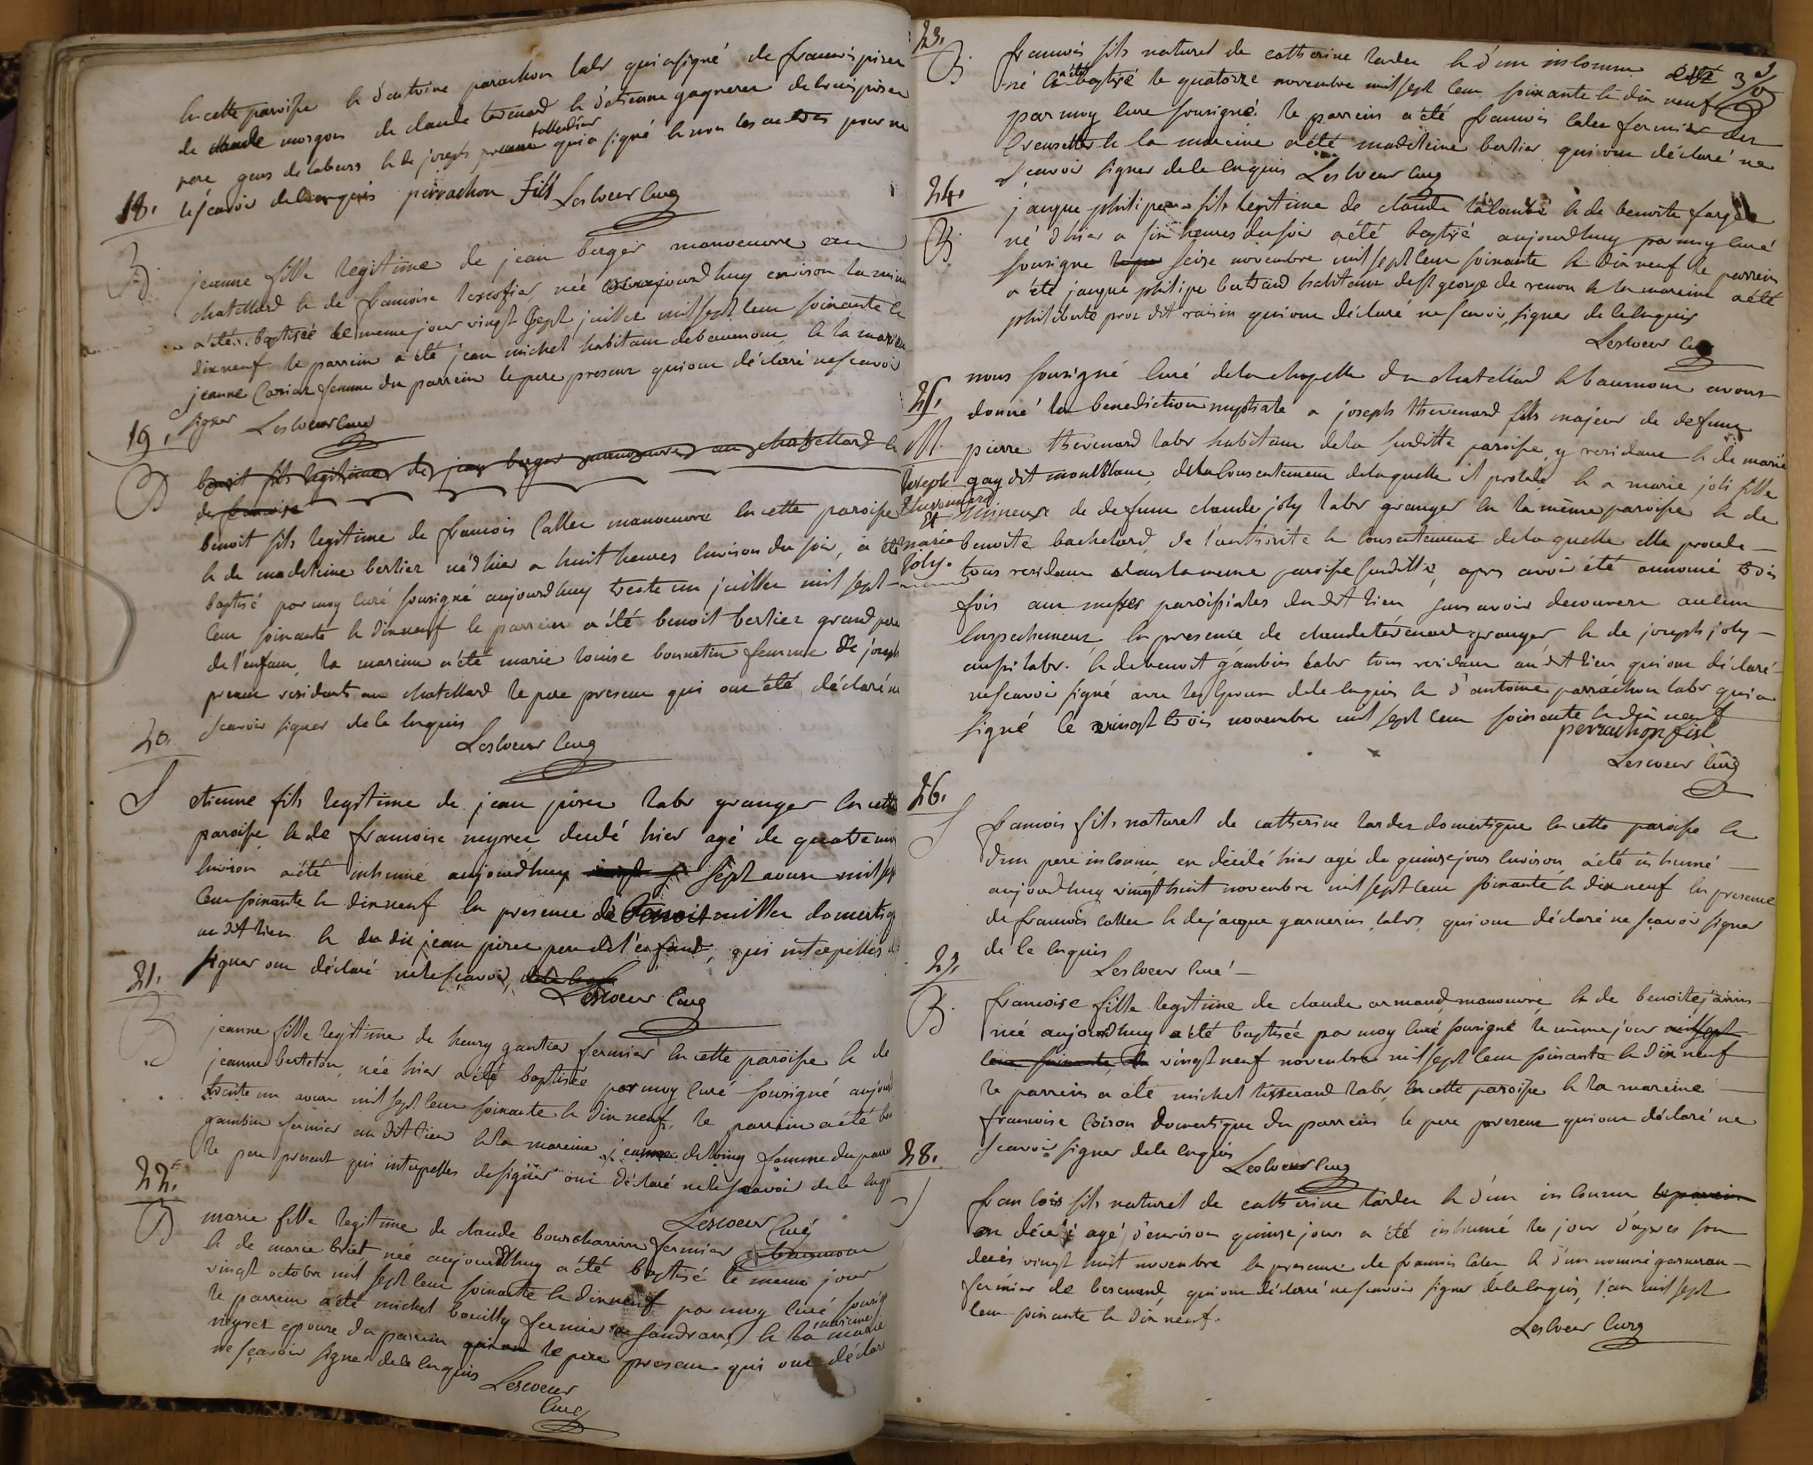 en cette paroisse & d'antoine parrachon labr qui a signé de francois piron
de claude morgon de claude tevenard & d'etienne gagneren
pere gens de labeurs & de joseph qui a signé & non les autres pour ne
le scavoir de ce enquis perrachon fils Lescoeur Curé
18.
B.
jeanne fille legitime de jean berger manoeuvre au
chatellard & de francoise née aujourdhuy environ la
a été baptisée le meme jour vingt sept juillet mil sept cent soixante &
dix neuf le parrein a été jean michel habitant de beaumont, & la mareine
jeanne femme du parrein le pere present qui ont déclaré ne scavoir
signer Lescoeur Curé
19.
B
benoit fils legitime de jean berger manoeuvre au chatellard &
de francoise
benoit fils legitime de francois Caller manoeuvre en cette paroisse
& de madeleine bertier né d'hier a huit heures environ du soir, a été
baptisé par moy curé sousigné aujourdhuy trente un juillet mil sept
cent soixante & dix neuf le parrein a été benoit bertier grand pere
de l'enfant, la mareine a été marie louise bonnetin femme de joseph
residents au chatellard le pere present qui ont été déclaré ne
scavoir signer de ce enquis
Lescoeur Curé
20.
S
etienne fils legitime de jean piron labr granger en cette
paroisse & de francoise neyret decedé hier agé de quatre ans
environ a été inhumé aujourdhuy sept aoust mil sept
cent soixante & dix neuf en presence de Benoit miller domestique
au dit lieu & du dit jean piron pere de l'enfant, qui interpellés de
signer ont déclaré ne le scavoir, de ce enquis
Lescoeur Curé
21.
B
jeanne fille legitime de henry gautier fermier en cette paroisse & de
jeanne berteton, née hier a été baptisée par moy curé sousigné aujourdhuy
trente un aoust mil sept cent soixante & dix neuf, le parrein a été
gambin fermier au dit lieu & la mareine jeanne femme du parrein
le pere present qui interpellés de signer ont déclaré ne le scavoir de ce enquis
Lescoeur Curé
22.
B
marie fille legitime de claude bourcharnin fermier a beaumont
& de marie briet née aujourdhuy a été baptisé le meme jour
vingt octobre mil sept cent soixante & dix neuf par moy curé sousigné
le parrein a été michel bouilly fermier a sandrans, & la mareine marie
neyret epouse du parrein le pere present qui ont déclaré
ne scavoir signer de ce enquis Lescoeur
Curé
23.
B.
francois fils naturel de catherine tardex & d'un inconnu
né & a été baptisé le quatorze novembre mil sept cent soixante & dix neuf
par moy curé sousigné. le parrein a été francois caler fermier des
creusettes & la mareine a été madeleine bertier qui ont déclaré ne
scavoir signer de ce enquis Lescoeur Curé
24.
B.
jacque philipe fils legitime de claude & de benoite farge
né d'hier a six heures du soir a été baptisé aujourdhuy par moy curé
sousigné seize novembre mil sept cent soixante & dix neuf le parrein
a été jacque philipe bertrand habitant de st george de renon & la mareine a été
philiberte proc dit raisin qui ont déclaré ne scavoir signer de ce enquis
Lescoeur Curé
25.
M.
joseph
thevenard
et
marie
joly.
nous sousigné curé de la chapelle du chatellard & baumont avons
donné la benediction nuptiale a joseph thevenard fils majeur de defunt
pierre thevenard labr habitant de la susditte paroisse, y residant & de marie
gay dit montblanc, de la consentement de laquelle il procede & a marie joli fille
mineure de defunt claude joly labr granger en la même paroisse & de
benoite bachelard, de l'authorité & consentement de laquelle elle procede
tous residant dans la meme paroisse susditte, apres avoir été annoncé trois
fois aux messes paroissiales du dit lieu sans avoir decouvert aucun
empechement, en presence de claude tevenard granger & de joseph joly
aussi labr. & de benoit gambin labr tous residant au dit lieu qui ont déclaré
ne scavoir signé avec les epoux de ce enquis & d'antoine parrachon labr qui a
signé le vingt trois novembre mil sept cent soixante & dix neuf
perrachon fils
Lescoeur Curé
26.
S
francois fils naturel de catherine tardex domestique en cette paroisse &
d'un pere inconnu, est décédé hier agé de quinze jours environ a été inhumé
aujourdhuy vingt huit novembre mil sept cent soixante & dix neuf en presence
de francois caller & de jacque garnerin, labrs, qui ont déclaré ne scavoir signer
de ce enquis
Lescoeur Curé
27.
B.
francoise fille legitime de claude armand, manoeuvre, & de benoite janin
née aujourdhuy a été baptisée par moy curé sousigné le même jour mil sept
cent soixante & vingt neuf novembre mil sept cent soixante & dix neuf
le parrein a été michel tisserand labr, en cette paroisse & la mareine
francoise Coison domestique du parrein le pere present qui ont déclaré ne
scavoir signer de ce enquis
Lescoeur Curé
28.
S
francois fils naturel de catherine tardex & d'un inconnu le parrein
est décédé agé d'environ quinze jours a été inhumé le jour d'apres son
decès vingt huit novembre en presence de francois caler & d'un nommé garneran
fermier de qui ont déclaré ne scavoir signer de ce enquis, l'an mil sept
cent soixante & dix neuf.
Lescoeur Curé